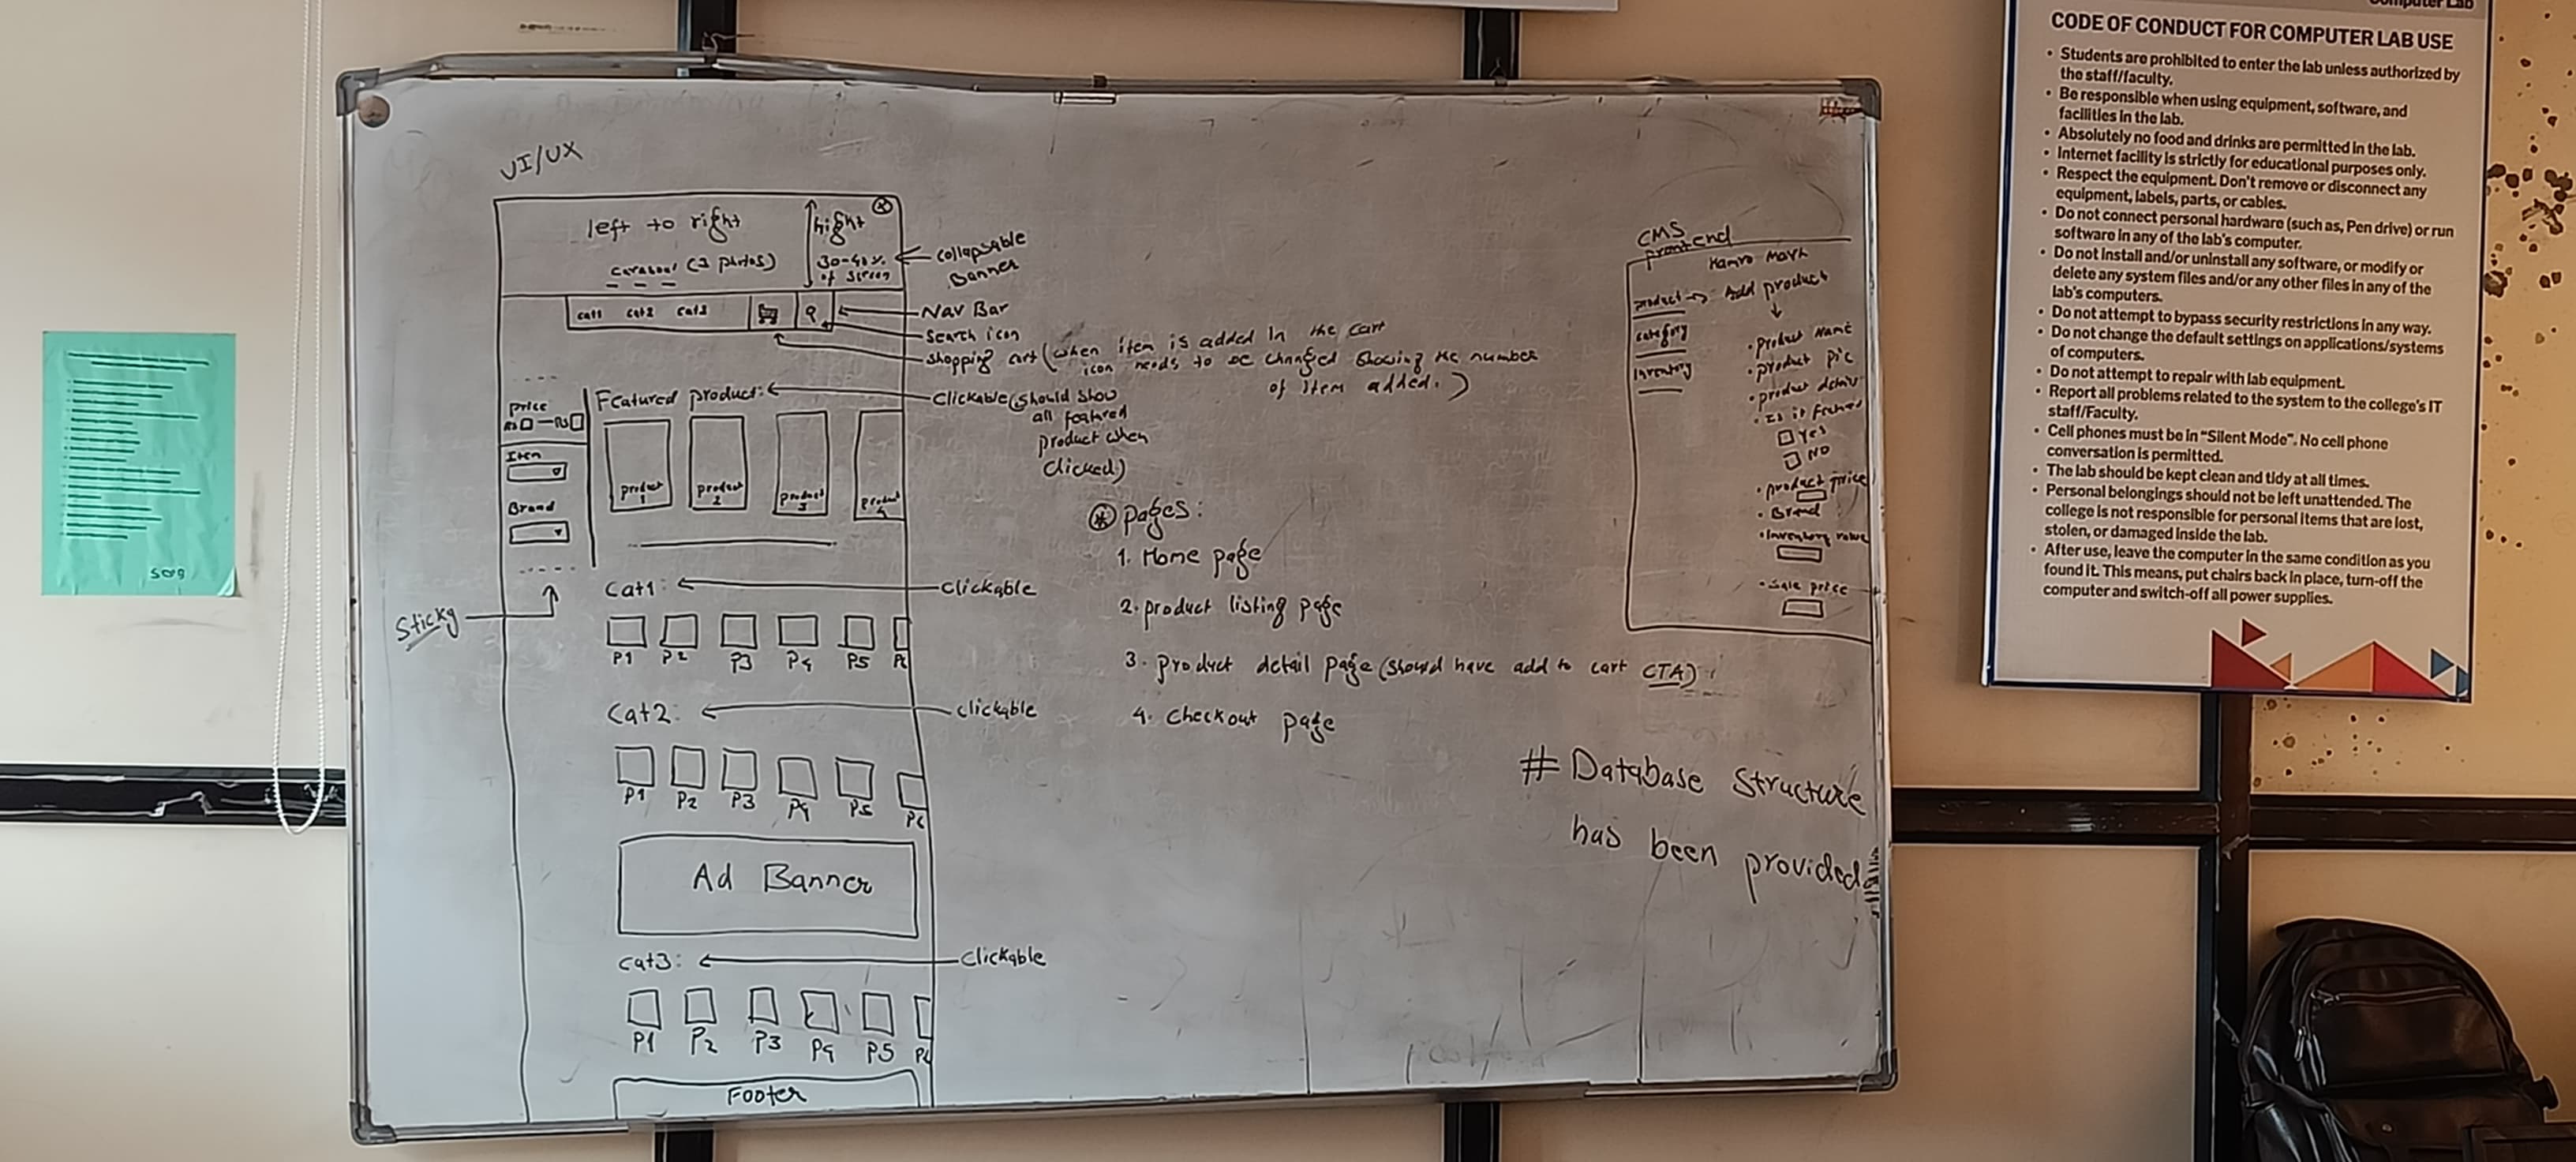 UI/UX
left to right
carasoul (3 photos)
hight
30-40%
of screen
collapsable
Banner
cat1 cat2 cat3
Nav Bar
Search icon
Shopping cart (when item is added In the cart
icon needs to be changed showing the number
of item added.)
price
RS — RS
Item
Brand
Sticky
Featured product:
Clickable (should show
all featured
product when
clicked)
product
1
product
2
product
3
product
4
Cat1:
Clickable
P1 P2 P3 P4 P5
Cat2:
Clickable
P1 P2 P3 P4 P5 P6
Ad Banner
Cat3:
Clickable
P1 P2 P3 P4 P5
Footer
pages:
1. Home page
2. product listing page
3. product detail page (should have add to cart CTA)
4. Checkout page
CMS
frontend
Hamro Mart
product → Add product
category
Inventory
• Product Name
• product pic
• product
• Is it
Yes
NO
• product price
• Brand
• Inventory
• Sale price
# Database Structure
has been provided
Computer Lab
CODE OF CONDUCT FOR COMPUTER LAB USE
• Students are prohibited to enter the lab unless authorized by
the staff/faculty.
• Be responsible when using equipment, software, and
facilities in the lab.
• Absolutely no food and drinks are permitted in the lab.
• Internet facility is strictly for educational purposes only.
• Respect the equipment. Don't remove or disconnect any
equipment, labels, parts, or cables.
• Do not connect personal hardware (such as, Pen drive) or run
software in any of the lab's computer.
• Do not install and/or uninstall any software, or modify or
delete any system files and/or any other files in any of the
lab's computers.
• Do not attempt to bypass security restrictions in any way.
• Do not change the default settings on applications/systems
of computers.
• Do not attempt to repair with lab equipment.
• Report all problems related to the system to the college's IT
staff/Faculty.
• Cell phones must be in "Silent Mode". No cell phone
conversation is permitted.
• The lab should be kept clean and tidy at all times.
• Personal belongings should not be left unattended. The
college is not responsible for personal items that are lost,
stolen, or damaged inside the lab.
• After use, leave the computer in the same condition as you
found it. This means, put chairs back in place, turn-off the
computer and switch-off all power supplies.